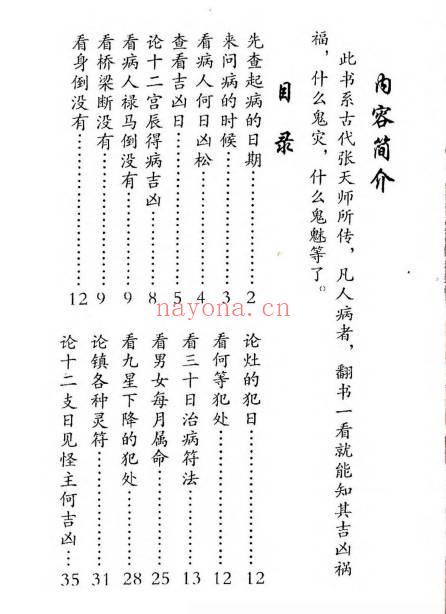 内容简介
此书系古代张天师所传，凡人病者，翻书一看就能知其吉凶祸
福，什么鬼灾，什么鬼魅等了。
目录
先查起病的日期…………2
来问病的时候…………3
看病人何日凶松…………4
查看吉凶日…………5
论十二宫辰得病吉凶…………8
看病人禄马倒没有…………9
看桥梁断没有…………9
看身倒没有…………12
论灶的犯日…………12
看何等犯处…………12
看三十日治病符法…………13
看男女每月属命…………25
看九星下降的犯处…………28
论镇各种灵符…………31
论十二支日见怪主何吉凶…35
nayona.cn